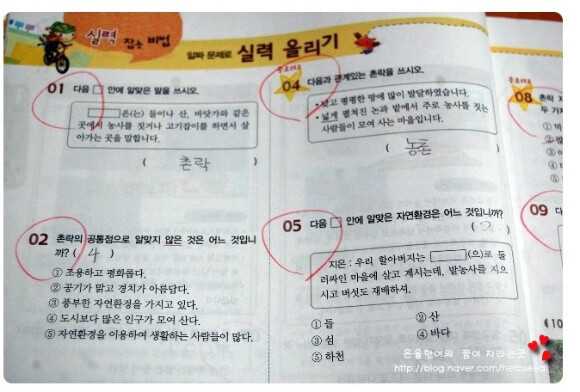 실력 잡는 비법
알짜 문제로 실력 올리기
01 다음 □ 안에 알맞은 말을 쓰시오.
□은(는) 들이나 산, 바닷가와 같은
곳에서 농사를 짓거나 고기잡이를 하면서 살
아가는 곳을 말합니다.
( 촌락 )
02 촌락의 공통점으로 알맞지 않은 것은 어느 것입니
까? ( 4 )
① 조용하고 평화롭다.
② 공기가 맑고 경치가 아름답다.
③ 풍부한 자연환경을 가지고 있다.
④ 도시보다 많은 인구가 모여 산다.
⑤ 자연환경을 이용하여 생활하는 사람들이 많다.
04 다음과 관계있는 촌락을 쓰시오.
• 낮고 평평한 땅에 많이 발달하였습니다.
• 넓게 펼쳐진 논과 밭에서 주로 농사를 짓는
사람들이 모여 사는 마을입니다.
( 농촌 )
05 다음 □ 안에 알맞은 자연환경은 어느 것입니까?
( 2 )
지은 : 우리 할아버지는 □(으)로 둘
러싸인 마을에 살고 계시는데, 밭농사를 지으
시고 버섯도 재배하셔.
① 들 ② 산
③ 섬 ④ 바다
⑤ 하천
08 촌락
두 가
①
②
③
④
⑤
09
①
②
③
④
10
http://blog.naver.com/